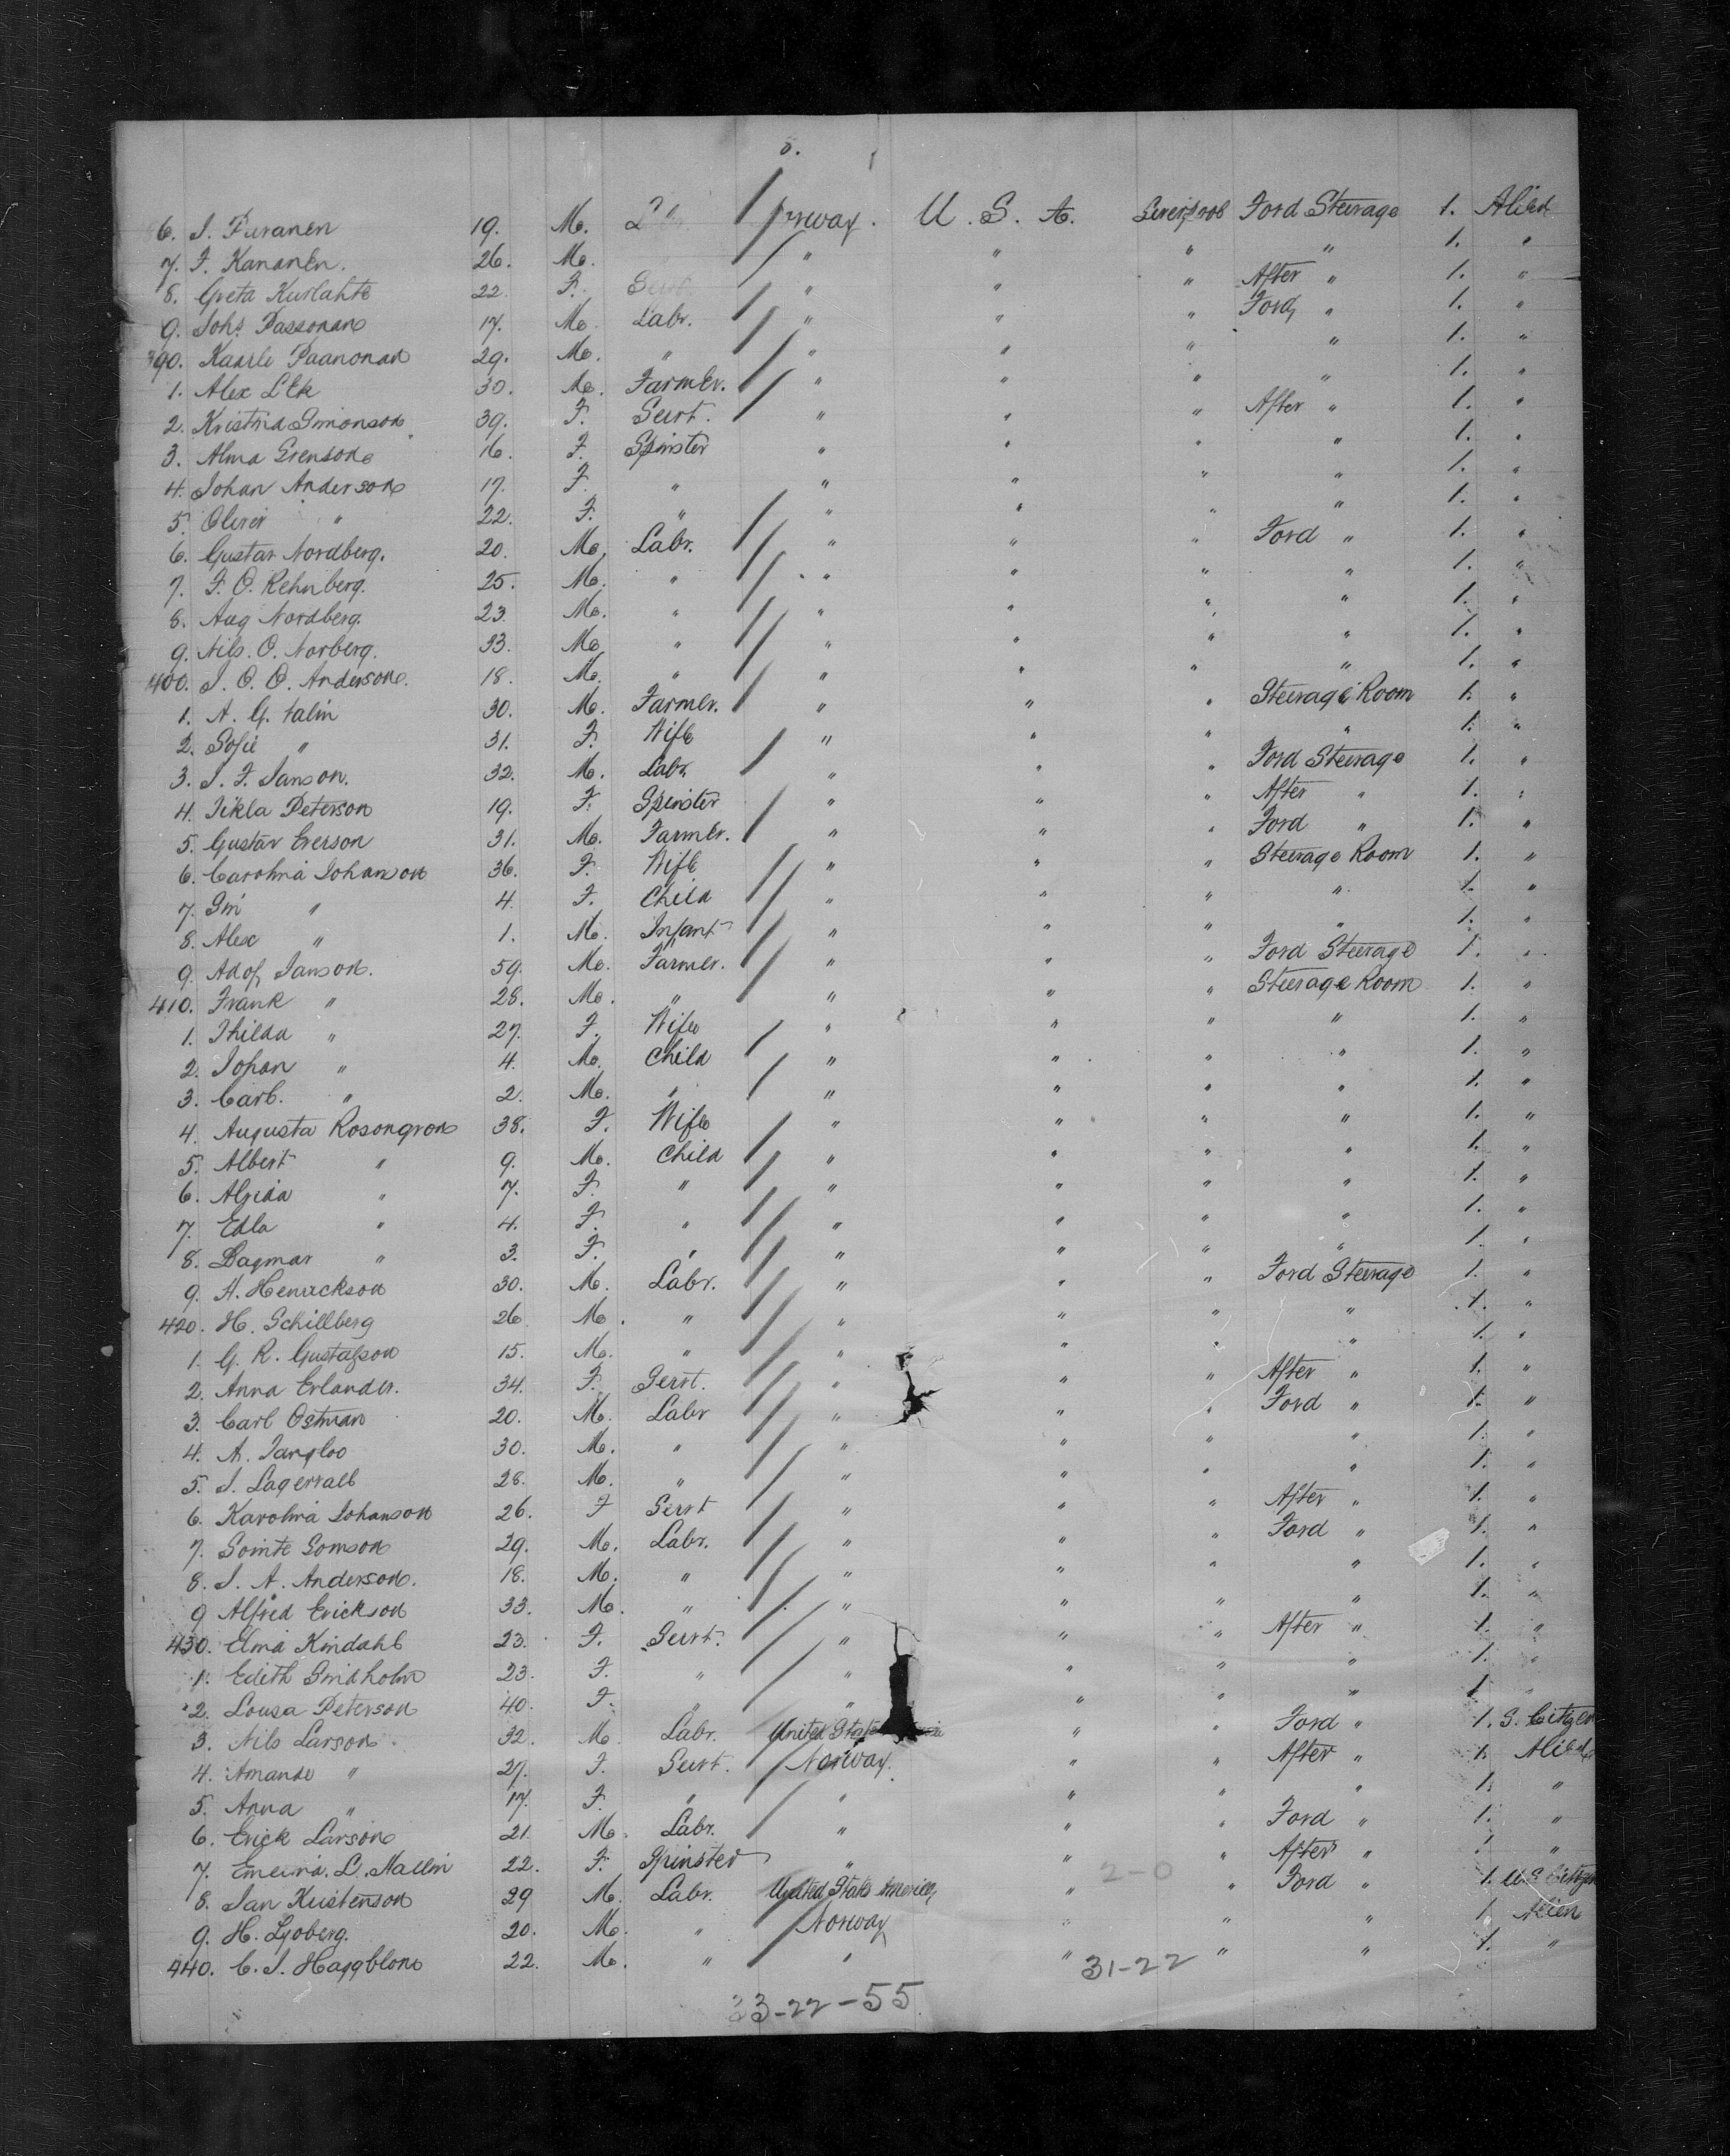 8.
6. J. Puranen 19. M. Norway. U. S. A. Liverpool Ford Steerage 1. Alien
7. F. Kananen. 26. M. " " " " 1. "
8. Greta Kurlahte 22. F. Servt " " " After " 1. "
9. Johs Passonan 17. M. Labr. " " " Ford, " 1. "
390. Kaarle Paanonan 29. M. " " " " " 1. "
1. Alex LEk 30. M. Farmer. " " " " 1. "
2. Kristina Simonson 39. F. Servt. " " " After " 1. "
3. Alma Svenson 16. F. Spinster " " " " 1. "
4. Johan Anderson 17. F. " " " " " 1. "
5. Oliver " 22. F. " " " " " 1. "
6. Gustav Nordberg. 20. M. Labr. " " " Ford " 1. "
7. F. O. Rehnberg. 25. M. " " " " " 1. "
8. Aug Nordberg. 23. M. " " " " " 1. "
9. Nils. O. Norberg. 33. M. " " " " " 1. "
400. J. O. O. Anderson. 18. M. " " " " " 1. "
1. A. G. talin 30. M. Farmer. " " " Steerage Room 1. "
2. Sofie " 31. F. Wife " " " " 1. "
3. J. F. Janson. 32. M. Labr. " " " Ford Steerage 1. "
4. Tekla Peterson 19. F. Spinster " " " After " 1. "
5. Gustav Everson 31. M. Farmer. " " " Ford " 1. "
6. Carolina Johanson 36. F. Wife " " " Steerage Room 1. "
7. " 4. F. Child " " " " 1. "
8. Alex " 1. M. Infant " " " " 1. "
9. Adof Janson. 59. M. Farmer. " " " Ford Steerage 1. "
410. Frank " 28. M. " " " " Steerage Room 1. "
1. Thilda " 27. F. Wife " " " " 1. "
2. Johan " 4. M. Child " " " " 1. "
3. Carl. " 2. M. " " " " " 1. "
4. Augusta Rosongron 38. F. Wife " " " " 1. "
5. Albert " 9. M. Child " " " " 1. "
6. " 7. F. " " " " " 1. "
7. Edla " 4. F. " " " " " 1. "
8. Dagmar " 3. F. " " " " " 1. "
9. A. Henrickson 30. M. Labr. " " " Ford Steerage 1. "
420. H. Schillberg 26. M. " " " " " 1. "
1. G. R. Gustafson 15. M. " " " " " 1. "
2. Anna Erlander. 34. F. Servt. " " " After " 1. "
3. Carl Ostman 20. M. Labr " " " Ford " 1. "
4. A. Jangloo 30. M. " " " " " 1. "
5. J. Lagervall 28. M. " " " " " 1. "
6. Karolina Johanson 26. F Servt " " " After " 1. "
7. Somte Somson 29. M. Labr. " " " Ford " 1. "
8. J. A. Anderson. 18. M. " " " " " 1. "
9 Alfred Erickson 33. M. " " " " " 1. "
430. Elma Kindahl 23. F. Servt. " " " After " 1. "
1. Edith Smidholm 23. F. " " " " " 1. "
2. Lousa Peterson 40. F. " " " " " 1 "
3. Nils Larson 32. M. Labr. United State " " Ford " 1. S. Citizen
4. Amande " 27. F. Servt. Norway. " " After " 1. Alien
5. Anna " 17. F. " " " " " 1. "
6. Erick Larson 21. M. Labr. " " " Ford " 1. "
7. L. Mallin 22. F. Spinster " " " After " 1 "
8. Jan Kustenson 29 M. Labr. United State America " " Ford " 1. U.S Citizen
9. H. Ljoberg. 20. M. " Norway " " " 1. Alien
440. C. J. Haggblom 22. M. " " " " " 1. "
2-0
31-22
33-22-55